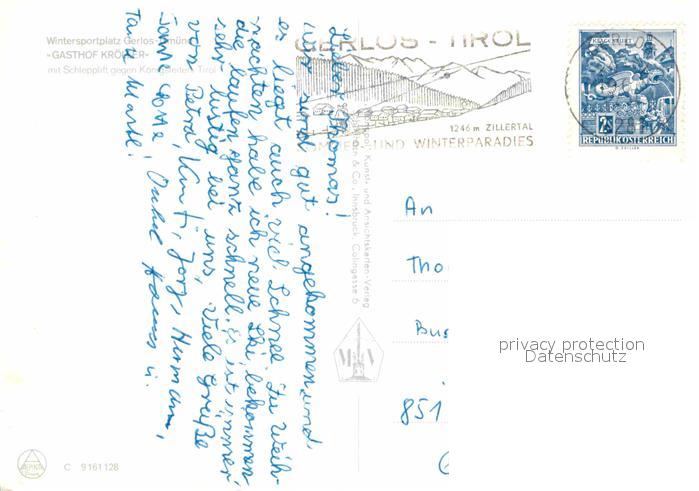 Wintersportplatz Gerlos-Gmünd
»GASTHOF KRÖLLER«
mit Schlepplift gegen Königsleiten, Tirol
GERLOS - TIROL
1246 m ZILLERTAL
SOMMER- UND WINTERPARADIES
KLAGENFURT
2 S
REPUBLIK ÖSTERREICH
Lieber Thomas!
wir sind gut angekommen und
es liegt auch viel Schnee. Zu Weih-
nachten habe ich neue Ski bekommen
die laufen ganz schnell. Es ist immer
sehr lustig bei uns, Viele Grüße
von Petra, Kurt, Jörg, Hermann,
Onkel u.
Tante
Kunst- und Ansichtskarten-Verlag
& Co., Innsbruck, Colingasse 6
An
Tho
Bus
851
privacy protection
Datenschutz
C 9161128